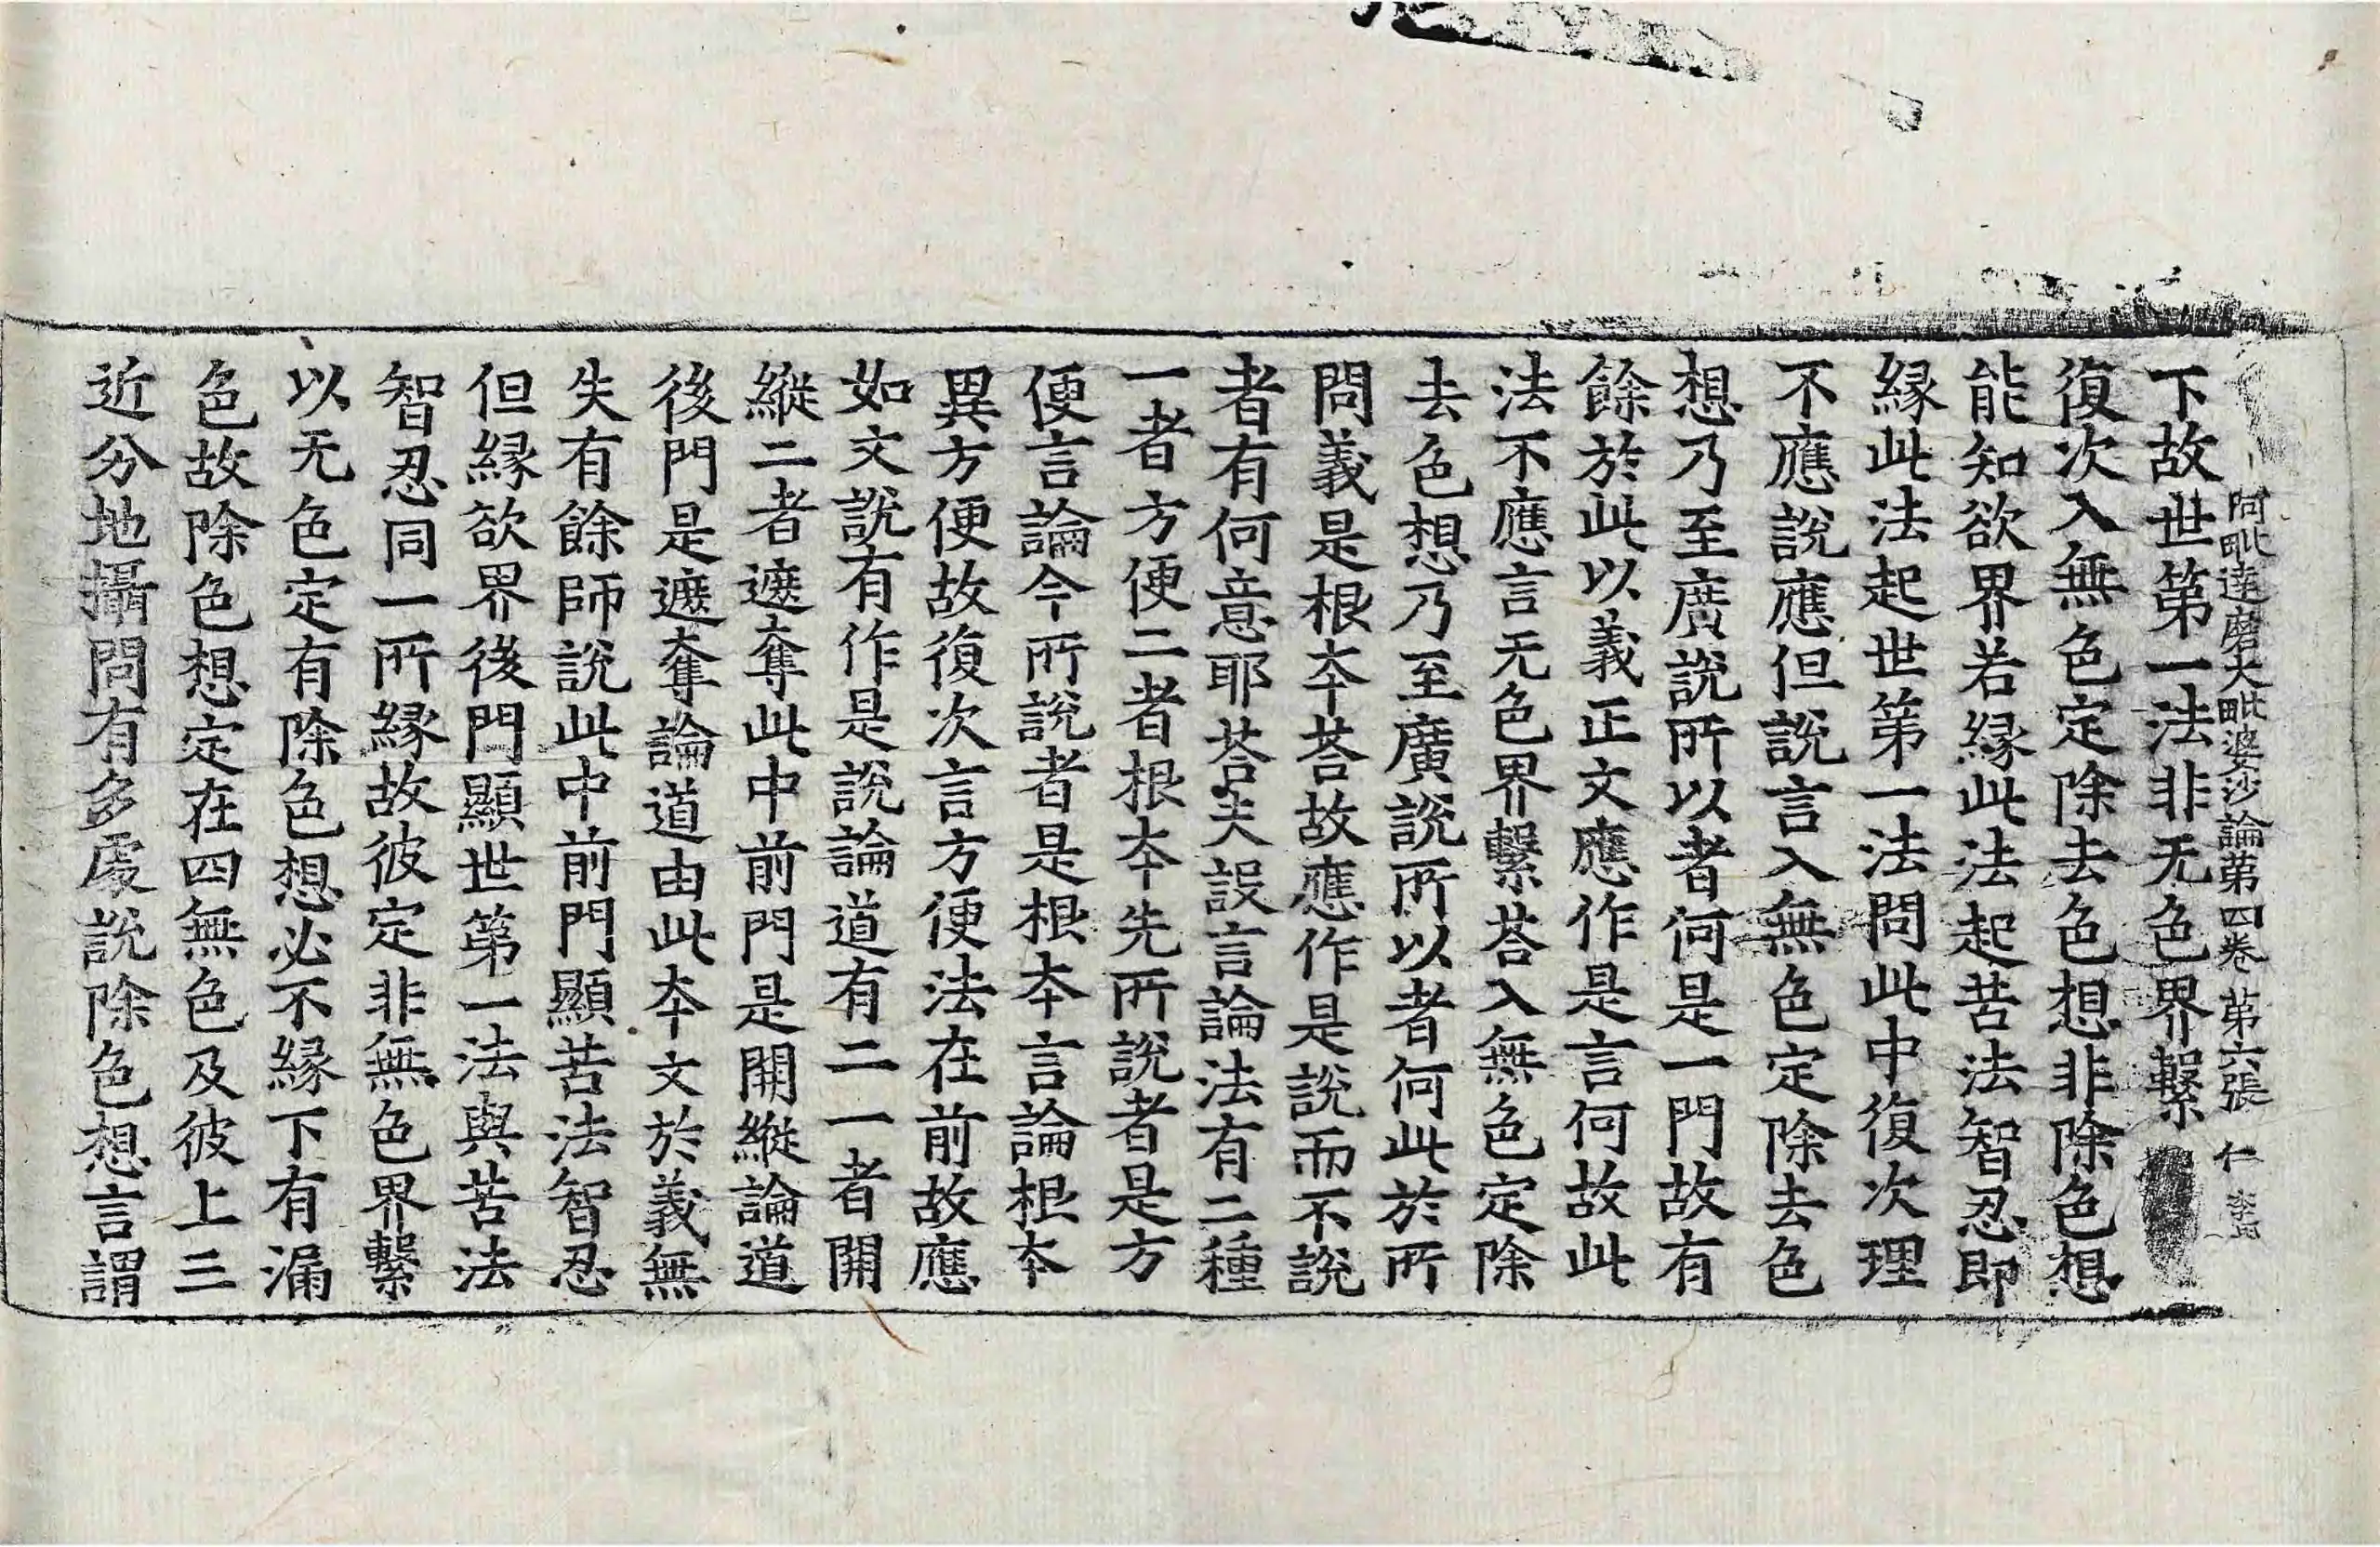 阿毗達磨大毗婆沙論第四卷 第六張 仁
下故世第一法非无色界繫
復次入無色定除去色想非除色想
能知欲界若縁此法起苦法智忍即
縁此法起世第一法問此中復次理
不應說應但說言入無色定除去色
想乃至廣說所以者何是一門故有
餘於此以義正文應作是言何故此
法不應言无色界繫荅入無色定除
去色想乃至廣說所以者何此於所
問義是根本荅故應作是說而不說
者有何意耶荅夫設言論法有二種
一者方便二者根本先所說者是方
便言論今所說者是根本言論根本
異方便故復次言方便法在前故應
如文說有作是說論道有二一者開
縱二者遮奪此中前門是開縱論道
後門是遮奪論道由此本文於義無
失有餘師說此中前門顯苦法智忍
但縁欲界後門顯世第一法與苦法
智忍同一所縁故彼定非無色界繫
以无色定有除色想必不縁下有漏
色故除色想定在四無色及彼上三
近分地攝問有多處說除色想言謂